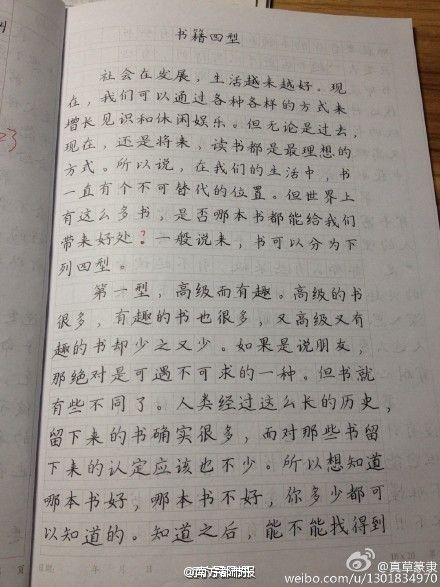 书籍四型
社会在发展，生活越来越好。现
在，我们可以通过各种各样的方式来
增长见识和休闲娱乐。但无论是过去，
现在，还是将来，读书都是最理想的
方式。所以说，在我们的生活中，书
一直有个不可替代的位置。但世界上
有这么多书，是否哪本书都能给我们
带来好处？一般说来，书可以分为下
列四型。
第一型，高级而有趣。高级的书
很多，有趣的书也很多，又高级又有
趣的书却少之又少。如果是说朋友，
那绝对是可遇不可求的一种。但书就
有些不同了。人类经过这么长的历史，
留下来的书确实很多，而对那些书留
下来的认定应该也不少。所以想知道
哪本书好，哪本书不好，你多少都可
以知道的。知道之后，能不能找得到
页
日期：
年 月 日
南方都市报
@真草篆隶
weibo.com/u/1301834970